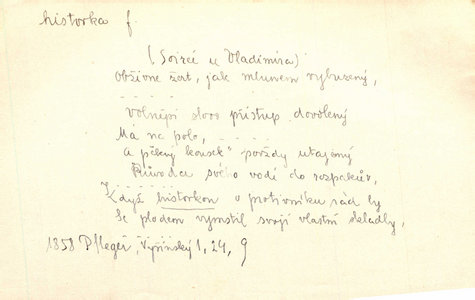 historka f.
(Soirée u Vladimíra)
Obživne žert, jak mluvem vybuzený,
- - - - -
Volnější slovo přístup dovolený
Má na polo, - - - - -
A pěkný kousek" povždy utajený
Původce svého vodí do rozpaků,
Když historkou o protivníku rád by
Se plodem vymstil svojí vlastní skladby,
1858 Pfleger, Vyšínský 1, 24, 9